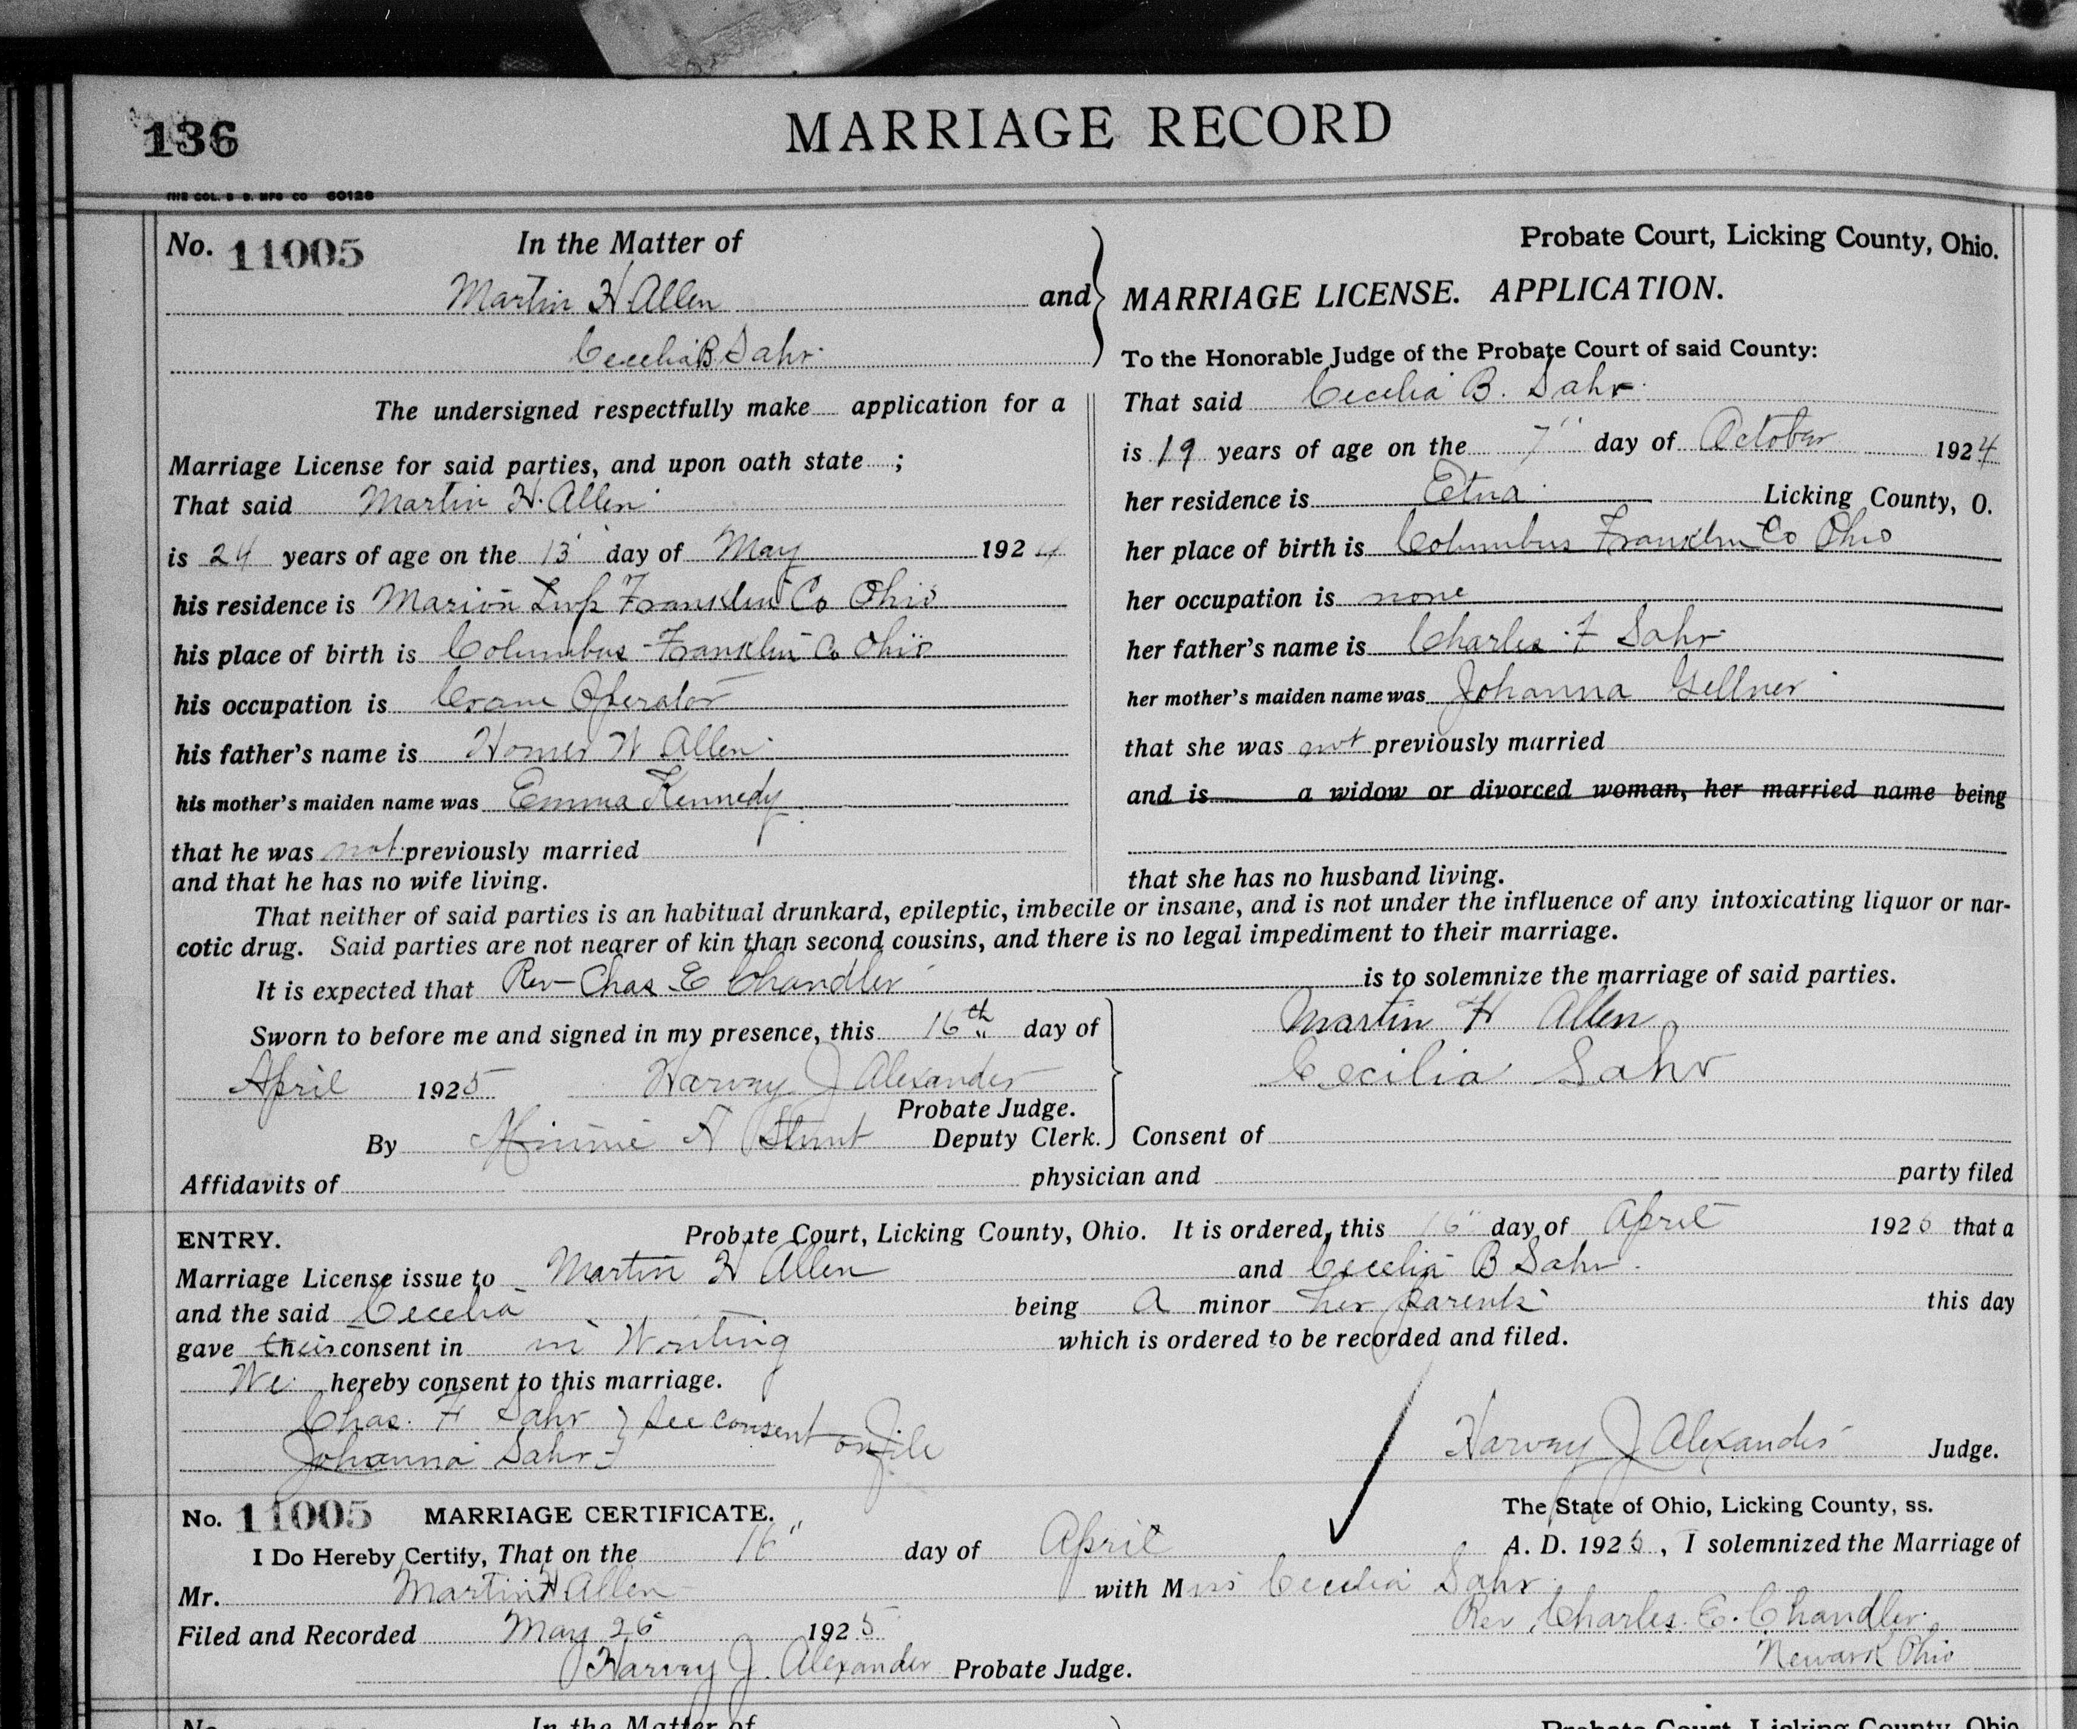 136
MARRIAGE RECORD
THE COL. B. B. MFG CO 60128
No. 11005 In the Matter of
Martin H Allen and
Cecelia B Sahr.
The undersigned respectfully make application for a
Marriage License for said parties, and upon oath state ;
That said Martin H. Allen
is 24 years of age on the 13 day of May 1924
his residence is Marion Twp Franklin Co Ohio
his place of birth is Columbus Franklin Co Ohio
his occupation is Crane Operator
his father's name is Homer W Allen
his mother's maiden name was Emma Kennedy
that he was not previously married
and that he has no wife living.
Probate Court, Licking County, Ohio.
MARRIAGE LICENSE. APPLICATION.
To the Honorable Judge of the Probate Court of said County:
That said Cecelia B. Sahr
is 19 years of age on the 7" day of October 1924
her residence is Etna Licking County, O.
her place of birth is Columbus Franklin Co Ohio
her occupation is none
her father's name is Charles F Sahr
her mother's maiden name was Johanna Gellner
that she was not previously married
and is a widow or divorced woman, her married name being
that she has no husband living.
That neither of said parties is an habitual drunkard, epileptic, imbecile or insane, and is not under the influence of any intoxicating liquor or nar-
cotic drug. Said parties are not nearer of kin than second cousins, and there is no legal impediment to their marriage.
It is expected that Rev Chas E Chandler is to solemnize the marriage of said parties.
Sworn to before me and signed in my presence, this 16th day of
April 1925 Harvey J Alexander
Probate Judge.
By Minnie A Deputy Clerk.
Martin H Allen
Cecilia Sahr
Consent of
Affidavits of physician and party filed
ENTRY. Probate Court, Licking County, Ohio. It is ordered, this 16" day of April 1925 that a
Marriage License issue to Martin H Allen and Cecelia B Sahr.
and the said Cecelia being a minor her parents this day
gave their consent in in Writing which is ordered to be recorded and filed.
We hereby consent to this marriage.
Chas. F Sahr } see consent on file
Johanna Sahr
Harvey J Alexander Judge.
No. 11005 MARRIAGE CERTIFICATE. The State of Ohio, Licking County, ss.
I Do Hereby Certify, That on the 16" day of April A. D. 1925, I solemnized the Marriage of
Mr. Martin H Allen with Miss Cecelia Sahr
Filed and Recorded May 26 1925 Rev. Charles E. Chandler
Harvey J. Alexander Probate Judge. Newark Ohio
No. In the Matter of Probate Court, Licking County, Ohio